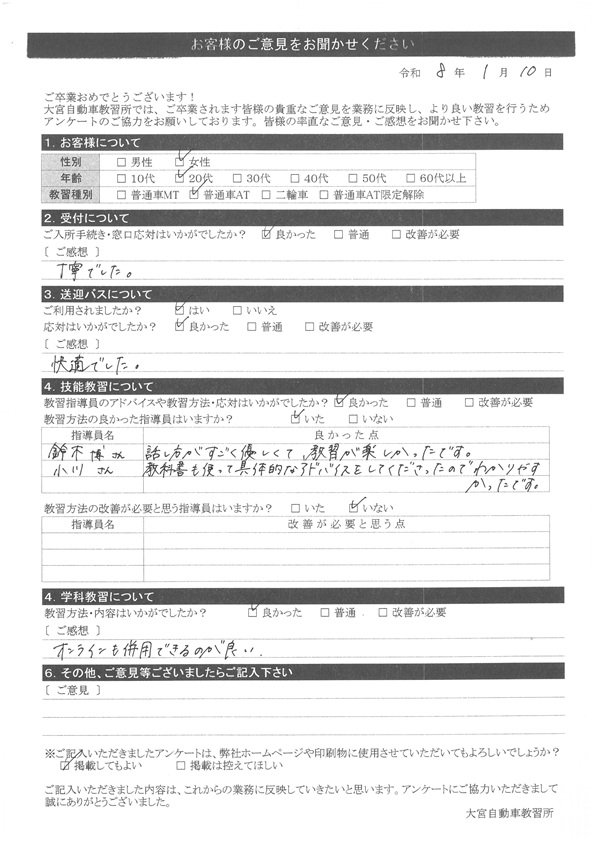 お客様のご意見をお聞かせください
令和 8 年 1 月 10 日
ご卒業おめでとうございます！
大宮自動車教習所では、ご卒業されます皆様の貴重なご意見を業務に反映し、より良い教習を行うため
アンケートのご協力をお願いしております。皆様の率直なご意見・ご感想をお聞かせ下さい。
1. お客様について
性別 □ 男性 ☑ 女性
年齢 □ 10代 ☑ 20代 □ 30代 □ 40代 □ 50代 □ 60代以上
教習種別 □ 普通車MT ☑ 普通車AT □ 二輪車 □ 普通車AT限定解除
2. 受付について
ご入所手続き・窓口応対はいかがでしたか？ ☑ 良かった □ 普通 □ 改善が必要
［ ご感想 ］
丁寧でした。
3. 送迎バスについて
ご利用されましたか？ ☑ はい □ いいえ
応対はいかがでしたか？ ☑ 良かった □ 普通 □ 改善が必要
［ ご感想 ］
快適でした。
4. 技能教習について
教習指導員のアドバイスや教習方法・応対はいかがでしたか？ ☑ 良かった □ 普通 □ 改善が必要
教習方法の良かった指導員はいますか？ ☑ いた □ いない
指導員名 良かった点
鈴木博さん 話し方がすごく優しくて、教習が楽しかったです。
小川さん 教科書も使って具体的なアドバイスをしてくださったのでわかりやす
かったです。
教習方法の改善が必要と思う指導員はいますか？ □ いた ☑ いない
指導員名 改善が必要と思う点
4. 学科教習について
教習方法・内容はいかがでしたか？ ☑ 良かった □ 普通 □ 改善が必要
［ ご感想 ］
オンラインも併用できるのが良い.
6. その他、ご意見等ございましたらご記入下さい
［ ご意見 ］
※ご記入いただきましたアンケートは、弊社ホームページや印刷物に使用させていただいてもよろしいでしょうか？
☑ 掲載してもよい □ 掲載は控えてほしい
ご記入いただきました内容は、これからの業務に反映していきたいと思います。アンケートにご協力いただきまして
誠にありがとうございました。
大宮自動車教習所